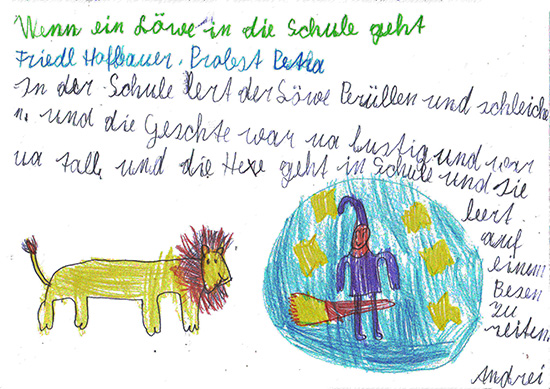 Wenn ein Löwe in die Schule geht
Friedl Hofbauer. Probst Petra
In der Schule lert der Löwe Perüllen und schleiche
n. und die Geschte war ua lustig und war
ua tall und die Hexe geht in Schule und sie
lert
auf
einem
Besen
zu
reiten.
Andrei